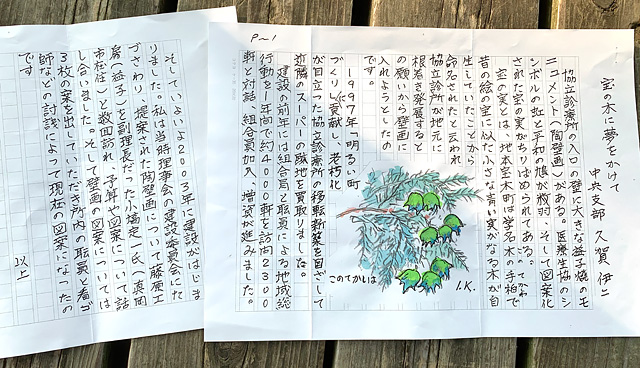 P-1
宝の木に夢をかけて
中央支部 久賀 伊二
協立診療所の入口の壁に大きな益子焼のモ
ニュメント(陶壁画)がある。医療生協のシ
ンボルの虹と平和の鳩が数羽、そして図案化
された宝の実がちりばめられてある。
宝の実とは、地本宝木町は学名木の手柏で
てかしわ
昔の絵の宝に似た小さな青い実がなる木が自
生していたことから
命名されたと云われ
協立診療所が地元に
根巻き発展すると
の願いから壁画に
入れようとしたの
です。
1997年「明るい町
づくりに貢献、老朽化
が目立った協立診療所の移転新築を目ざして
近隣のスーパーの敷地を買取りました。
建設の前年には組合員と職員による地域総
行動を、年間で約4000軒を訪問2300
軒と対話、組合員加入、増資が進みました。
このてがしは
I.K.
そしていよいよ2003年に建設がはじま
りました。私は当時理事会の建設委員会にた
づさわり、提案された陶壁画について藤原工
房(益子)と副理長だった小端定一氏(真岡
市在住)と数回訪れ、予算や図案について話
し合いました。そして壁画の図案については
3枚の案を出していただき所内の職員と看ご
師などの討議によって現在の図案になったの
です
以上